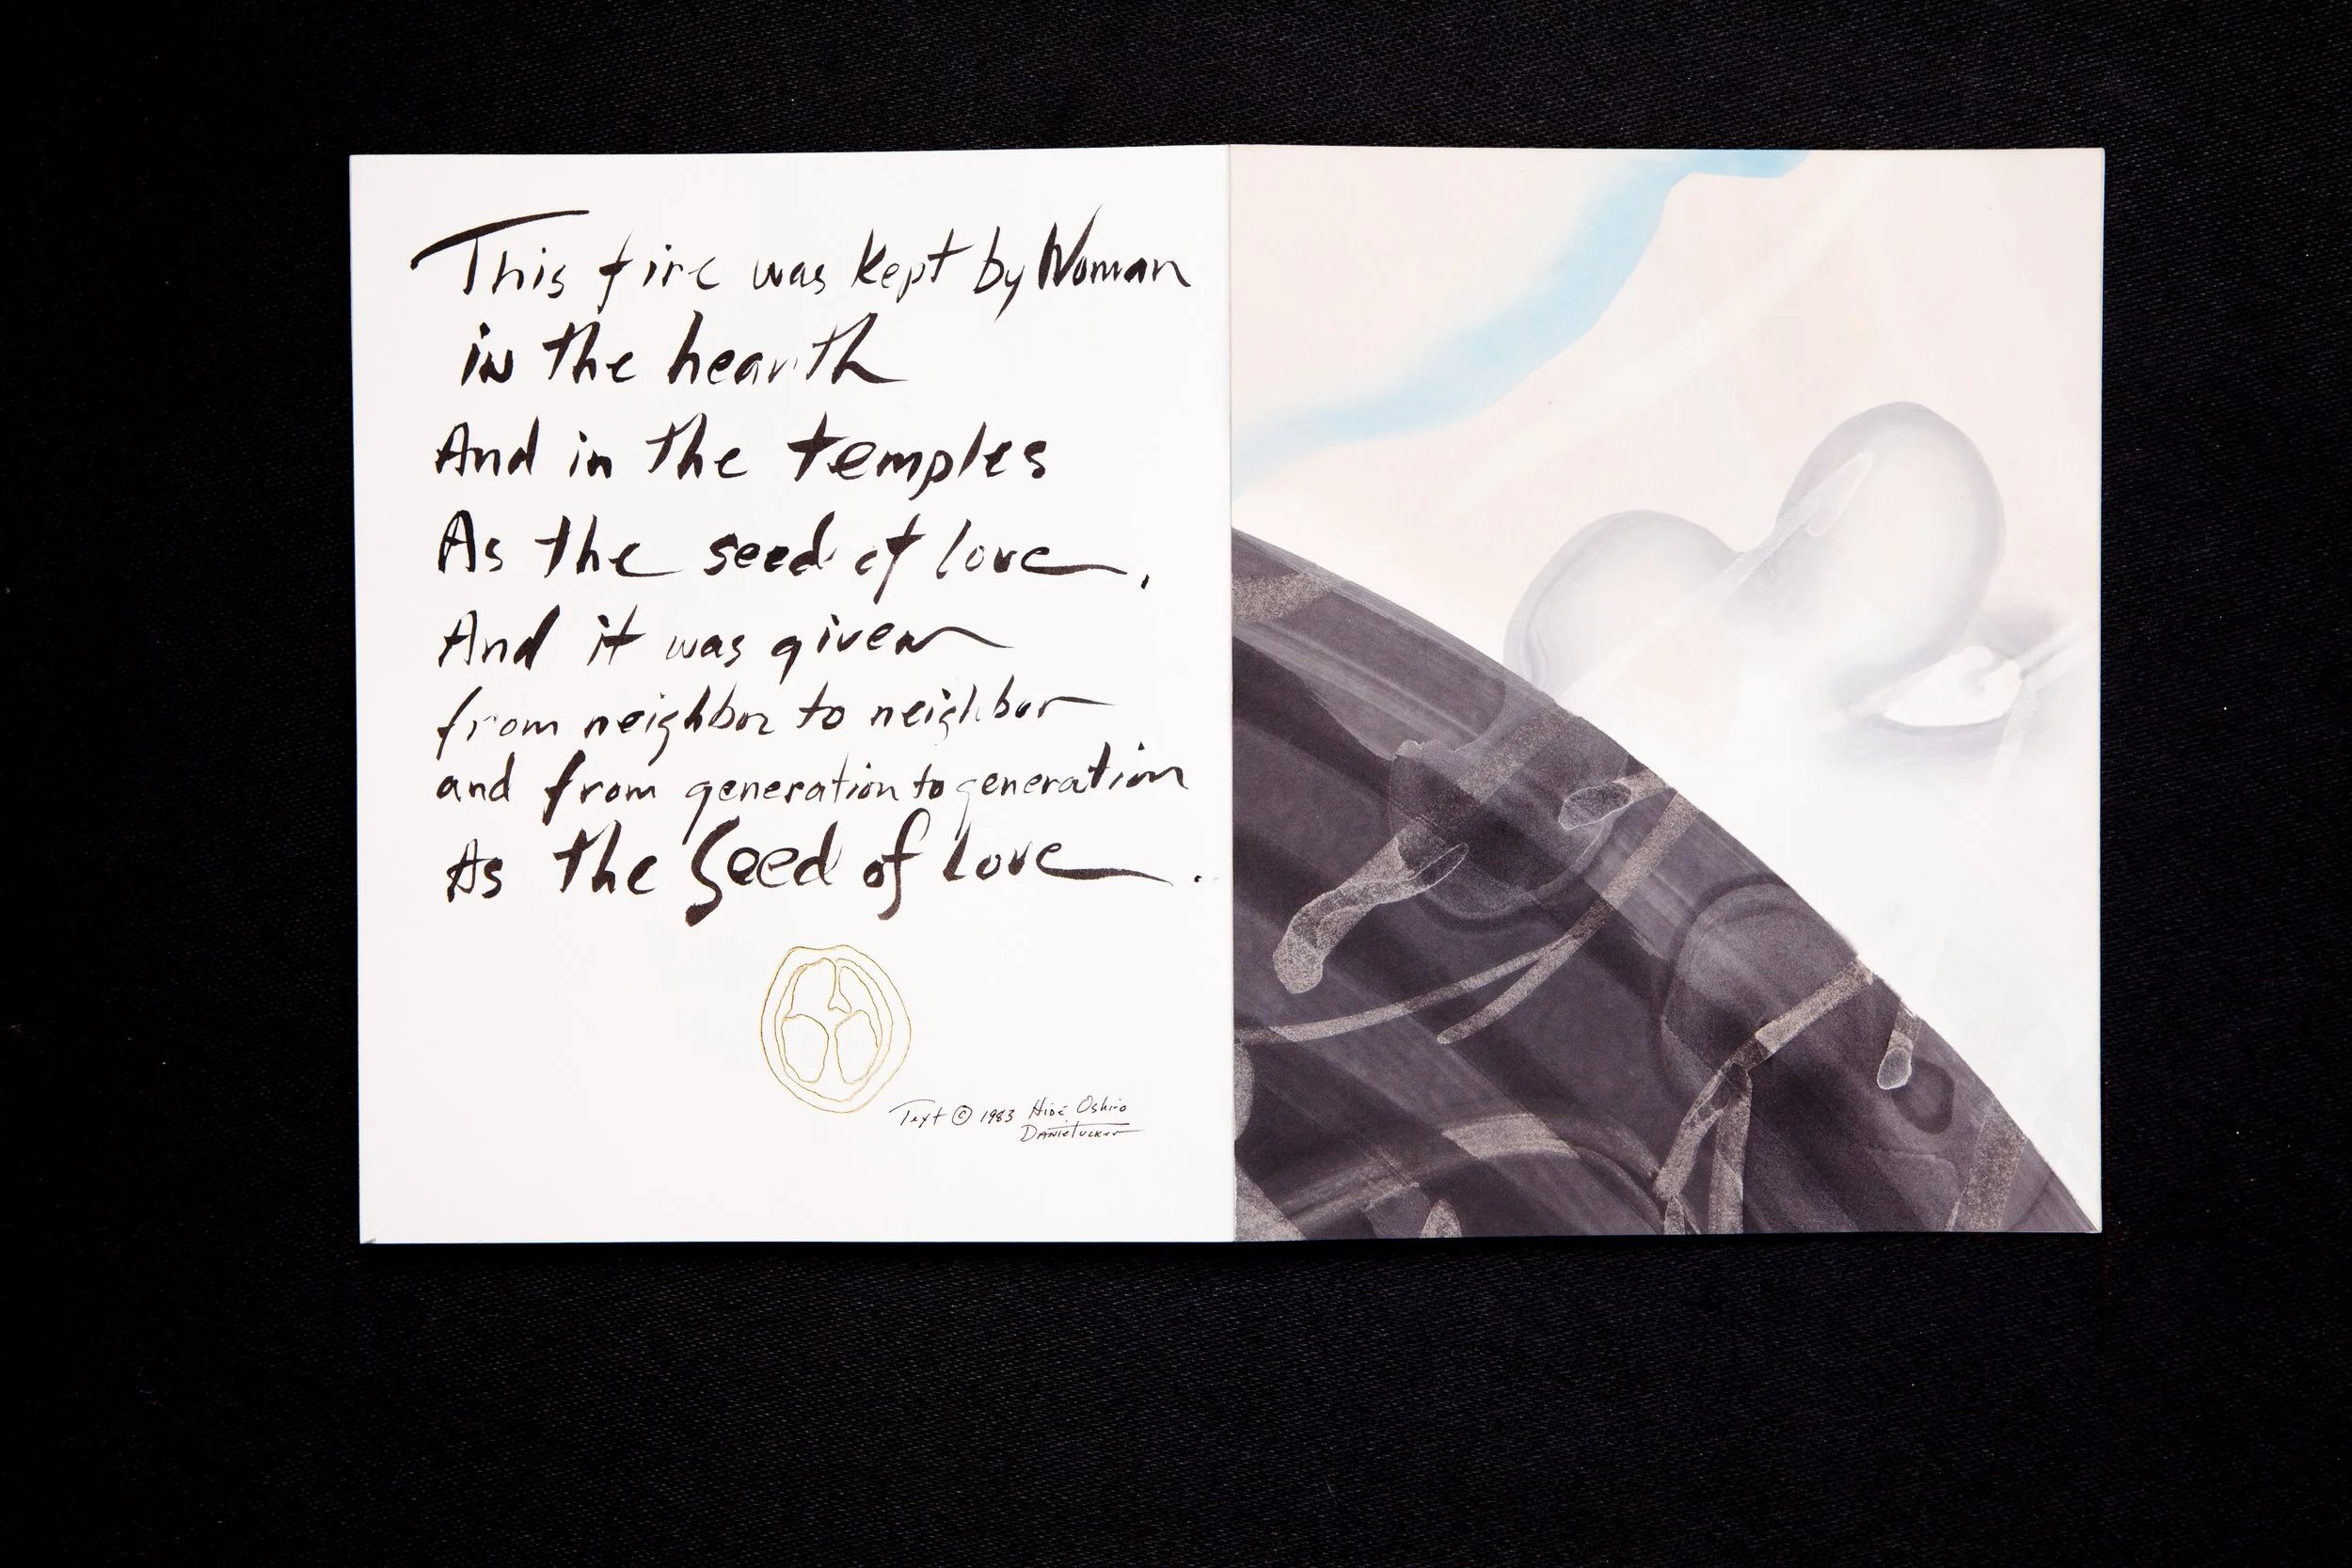 This fire was kept by Woman
in the hearth
And in the temples
As the seed of love,
And it was given
from neighbor to neighbor
and from generation to generation
As the Seed of Love.
Text © 1983 Hidé Oshiro
Danie Tucker